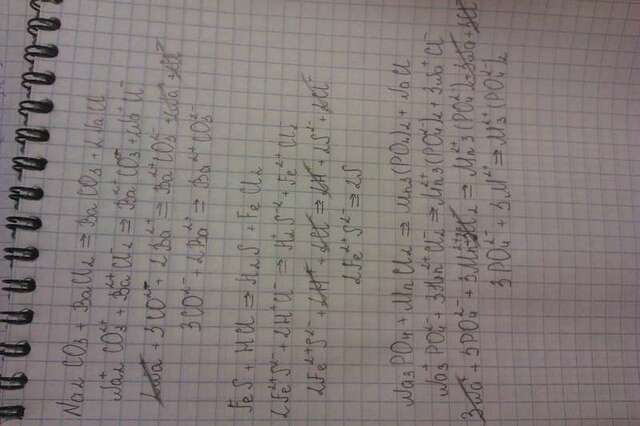 Na2 CO3 + BaCl2 ⇒ Ba CO3 + 2NaCl
Na2⁺ CO3²⁺ + Ba²⁺Cl2⁻ ⇒ Ba²⁺CO3²⁻ + Na⁺ Cl⁻
+ 3CO²⁻ + 2Ba²⁺ ⇒ Ba²⁺CO3²⁻
3CO²⁻ + 2Ba²⁺ ⇒ Ba²⁺CO3²⁻
FeS + HCl ⇒ H2S + FeCl2
2Fe²⁺S²⁻ + 2H⁺Cl⁻ ⇒ H2⁺S²⁻ + Fe²⁺Cl2
2Fe²⁺S²⁻ + 2H⁺ + 2Cl⁻ ⇒ 2H⁺ + 2S²⁻ + 2Cl⁻
2Fe²⁺S²⁻ ⇒ 2S
Na3 PO4 + MnCl2 ⇒ Mn3(PO4)2 + NaCl
Na3⁺ PO4³⁻ + 3Mn²⁺Cl2⁻ ⇒ Mn3²⁺(PO4³⁻)2 + 3Na⁺Cl⁻
3Na + 3PO4²⁻ + ⇒ Mn3²⁺(PO4²⁻)2
3PO4²⁻ + 3M²⁺ ⇒ M3²⁺(PO4²⁻)2